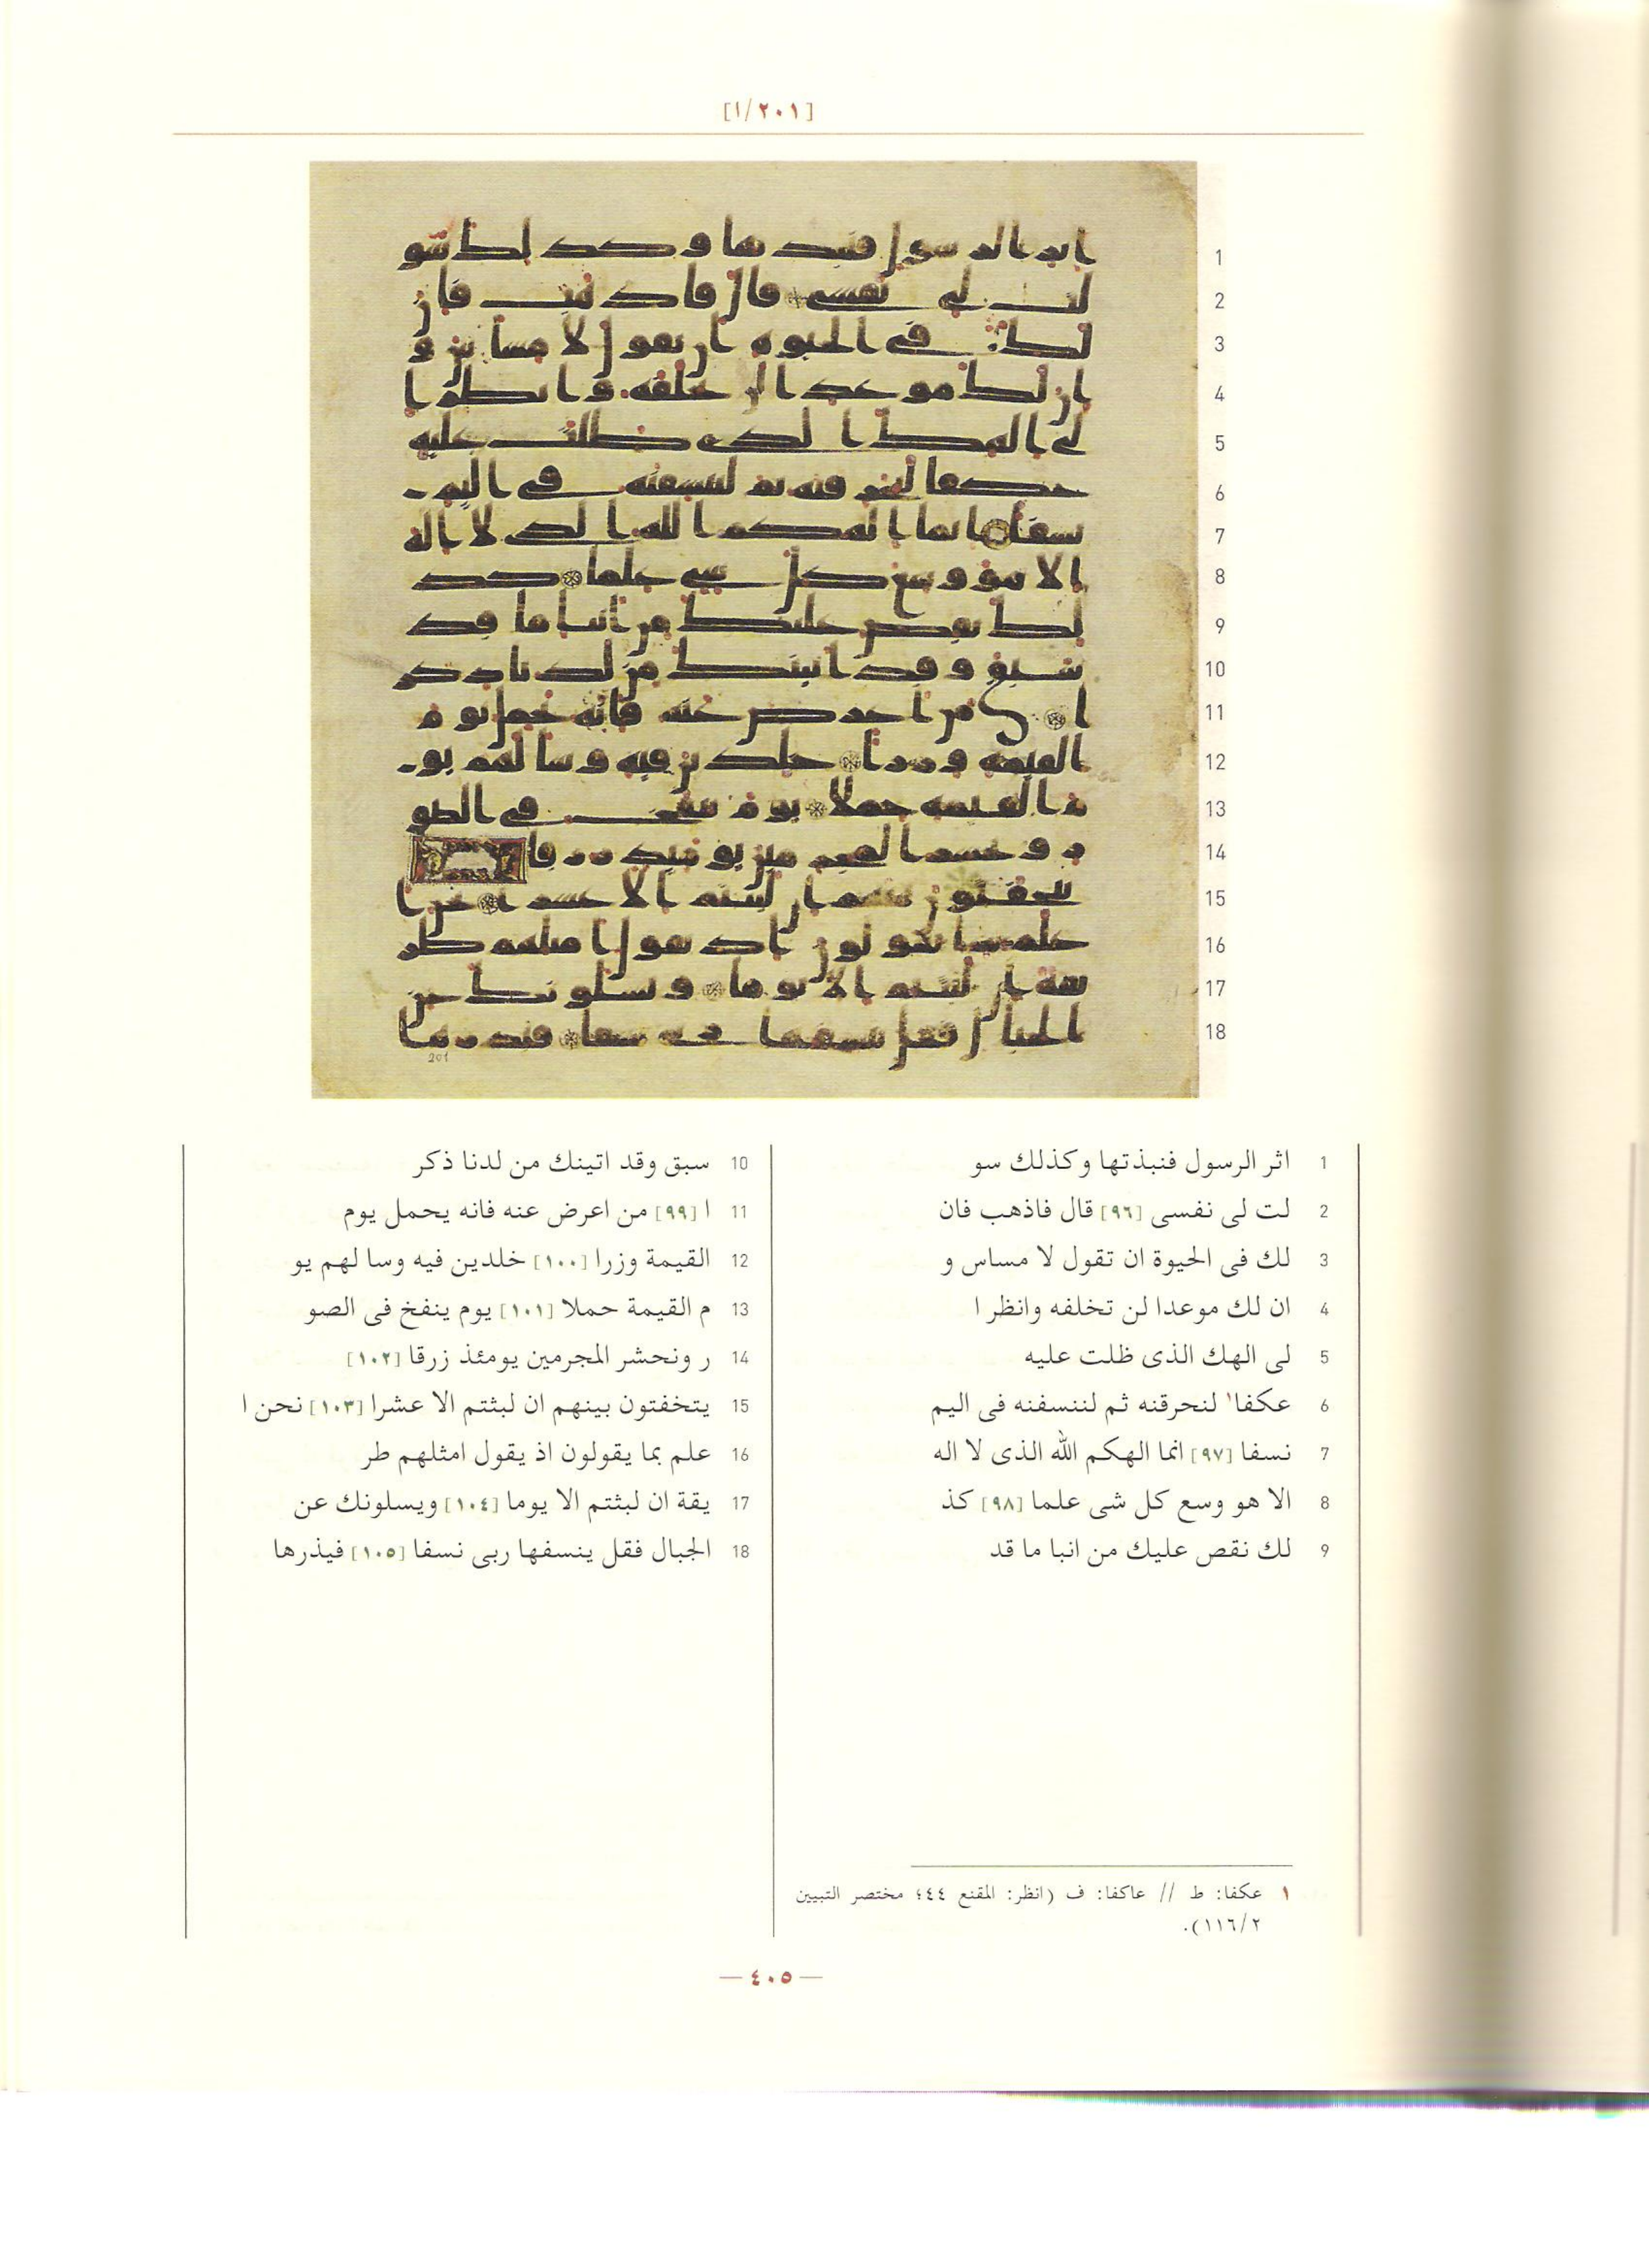 [٢٠١/١]
1 اثر الرسول فنبذتها وكذلك سو
2 لت لى نفسى [٩٦] قال فاذهب فان
3 لك فى الحيوة ان تقول لا مساس و
4 ان لك موعدا لن تخلفه وانظر ا
5 لى الهك الذى ظلت عليه
6 عكفا١ لنحرقنه ثم لننسفنه فى اليم
7 نسفا [٩٧] انما الهكم الله الذى لا اله
8 الا هو وسع كل شى علما [٩٨] كذ
9 لك نقص عليك من انبا ما قد
10 سبق وقد اتينك من لدنا ذكر
11 ا [٩٩] من اعرض عنه فانه يحمل يوم
12 القيمة وزرا [١٠٠] خلدين فيه وسا لهم يو
13 م القيمة حملا [١٠١] يوم ينفخ فى الصو
14 ر ونحشر المجرمين يومئذ زرقا [١٠٢]
15 يتخفتون بينهم ان لبثتم الا عشرا [١٠٣] نحن ا
16 علم بما يقولون اذ يقول امثلهم طر
17 يقة ان لبثتم الا يوما [١٠٤] ويسلونك عن
18 الجبال فقل ينسفها ربى نسفا [١٠٥] فيذرها
١ عكفا: ط // عاكفا: ف (انظر: المقنع ٤٤؛ مختصر التبيين
١١٦/٢).
—٤٠٥—